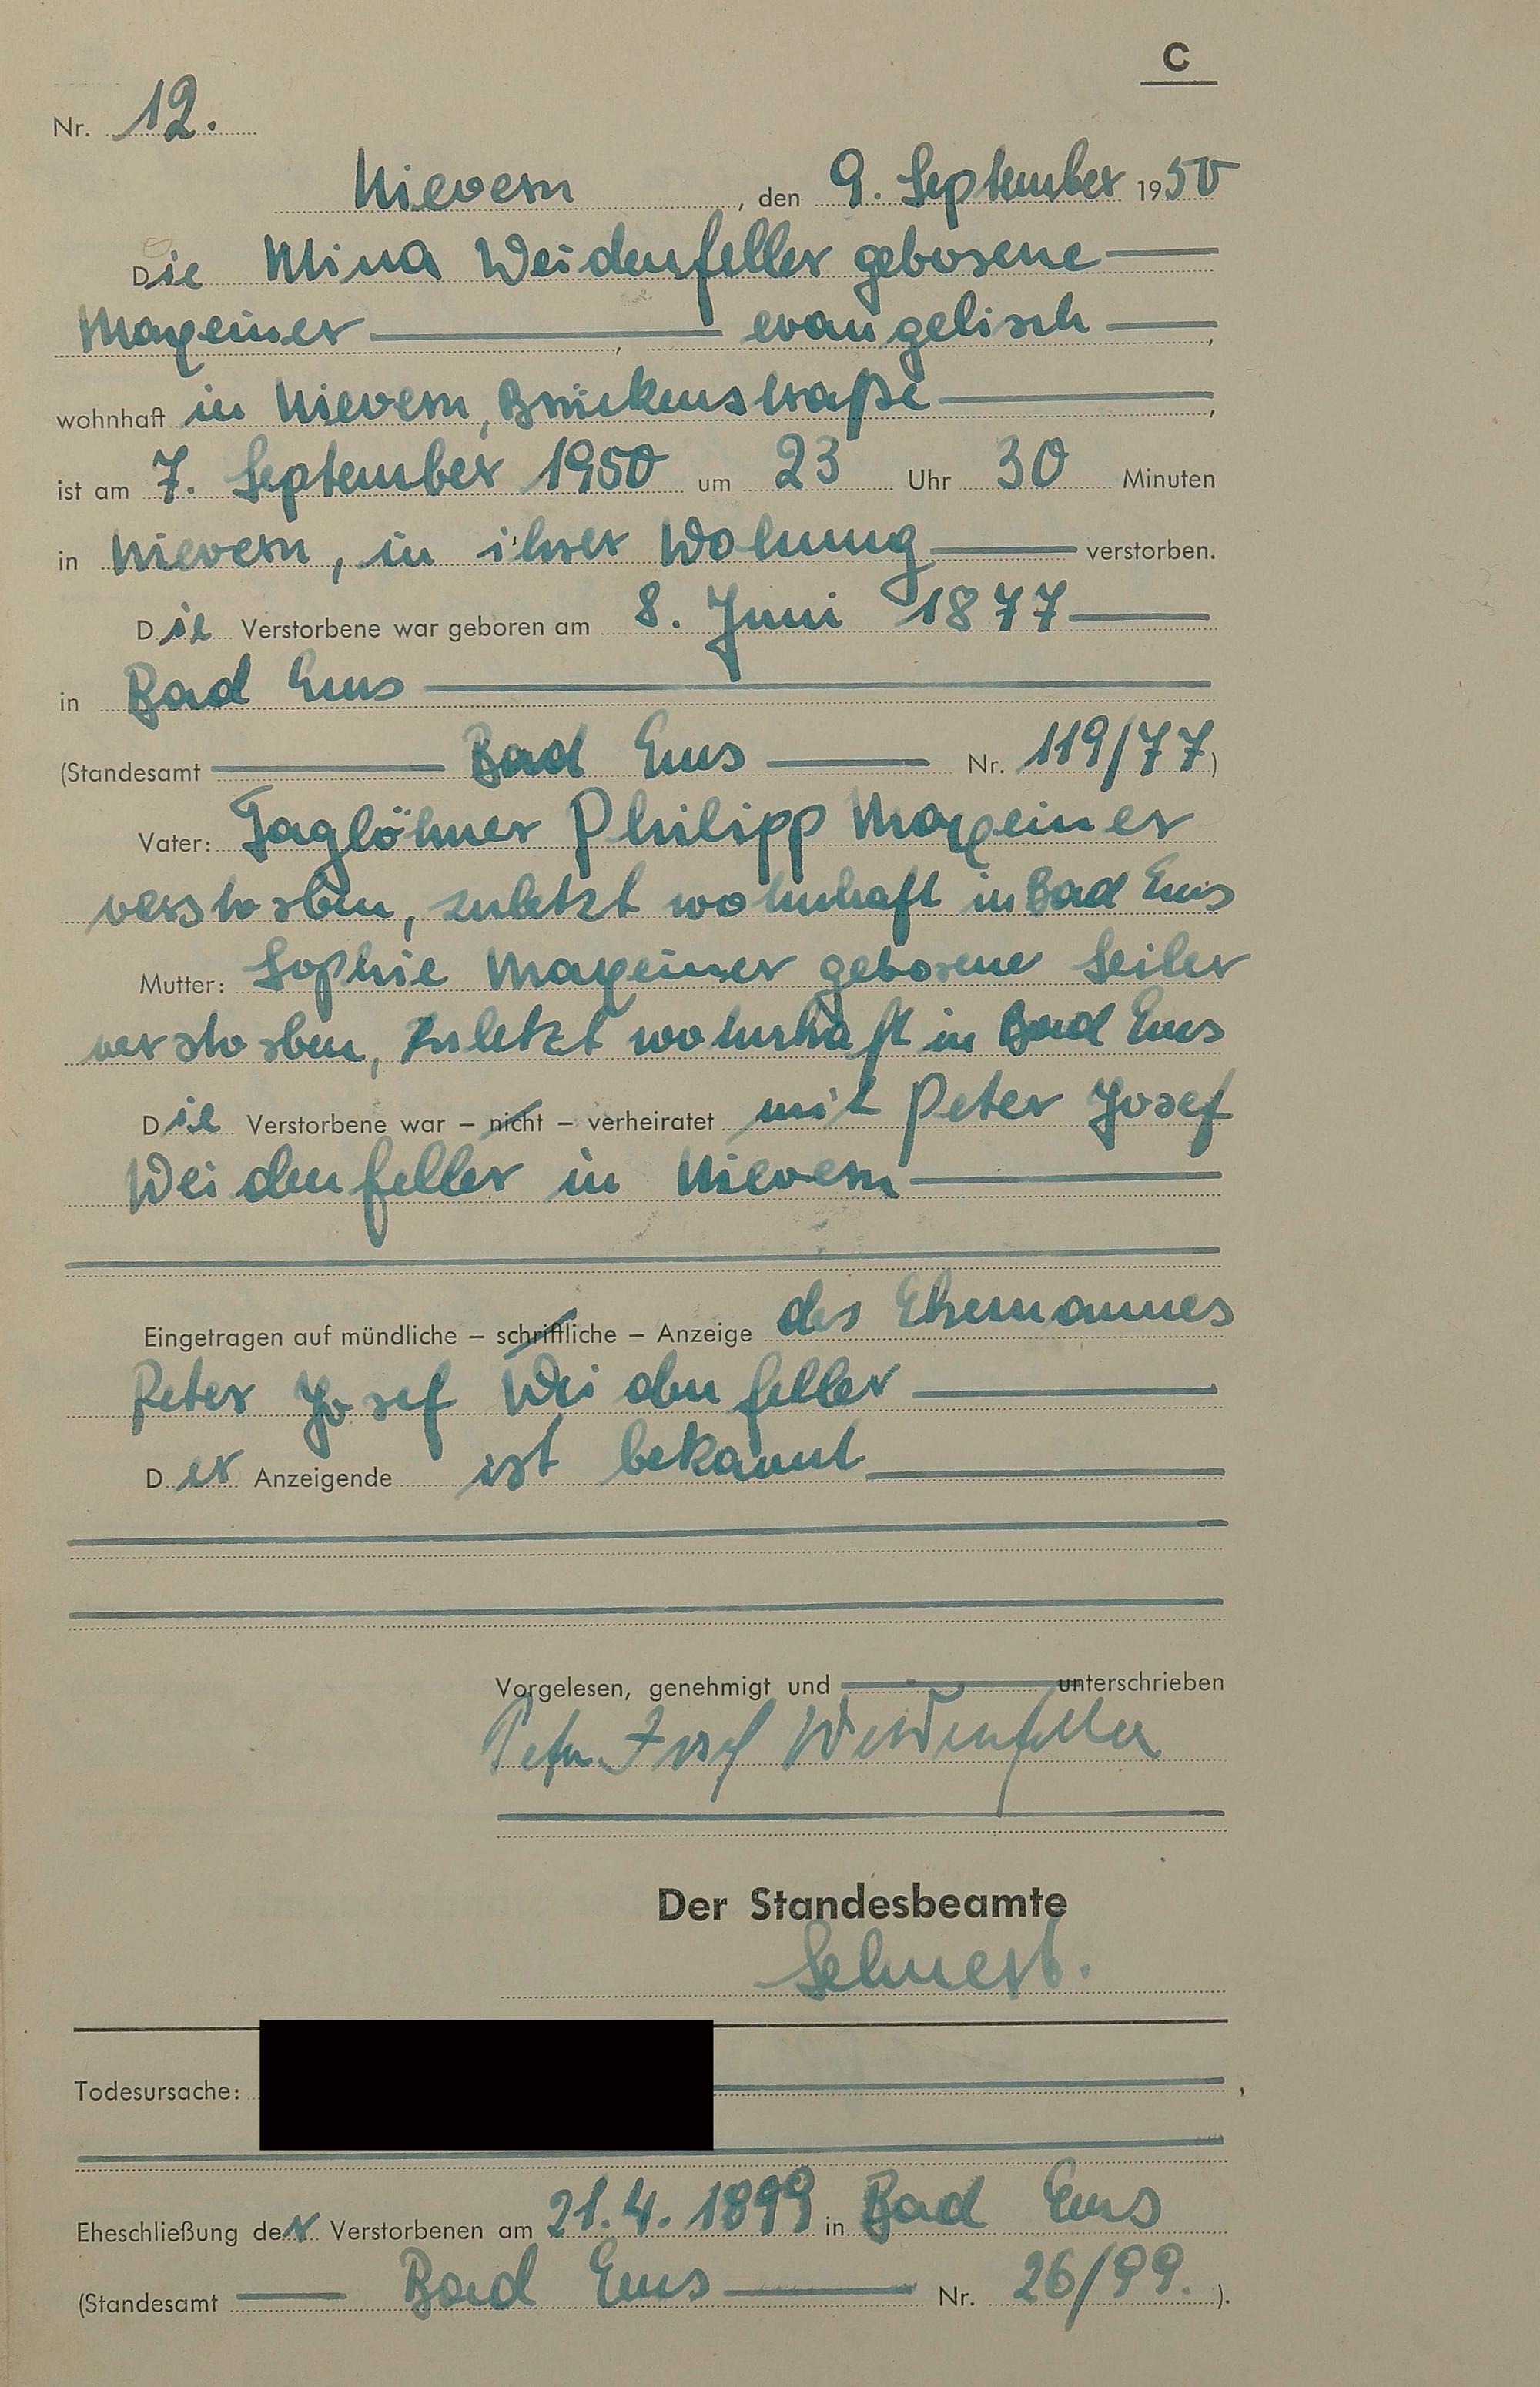 C
Nr. 12.
Nievern, den 9. September 1950
Die Mina Weidenfeller geborene
Maxeiner evangelisch,
wohnhaft in Nievern, Brückenstraße,
ist am 7. September 1950 um 23 Uhr 30 Minuten
in Nievern, in ihrer Wohnung verstorben.
Die Verstorbene war geboren am 8. Juni 1877
in Bad Ems
(Standesamt Bad Ems Nr. 119/77)
Vater: Taglöhner Philipp Maxeiner
verstorben, zuletzt wohnhaft in Bad Ems
Mutter: Sophie Maxeiner geborene Seiler
verstorben, zuletzt wohnhaft in Bad Ems
Die Verstorbene war – nicht – verheiratet mit Peter Josef
Weidenfeller in Nievern
Eingetragen auf mündliche – schriftliche – Anzeige des Ehemannes
Peter Josef Weidenfeller
Der Anzeigende ist bekannt
Vorgelesen, genehmigt und unterschrieben
Peter Josef Weidenfeller
Der Standesbeamte
Todesursache:
Eheschließung der Verstorbenen am 21.4.1899 in Bad Ems
(Standesamt Bad Ems Nr. 26/99.).